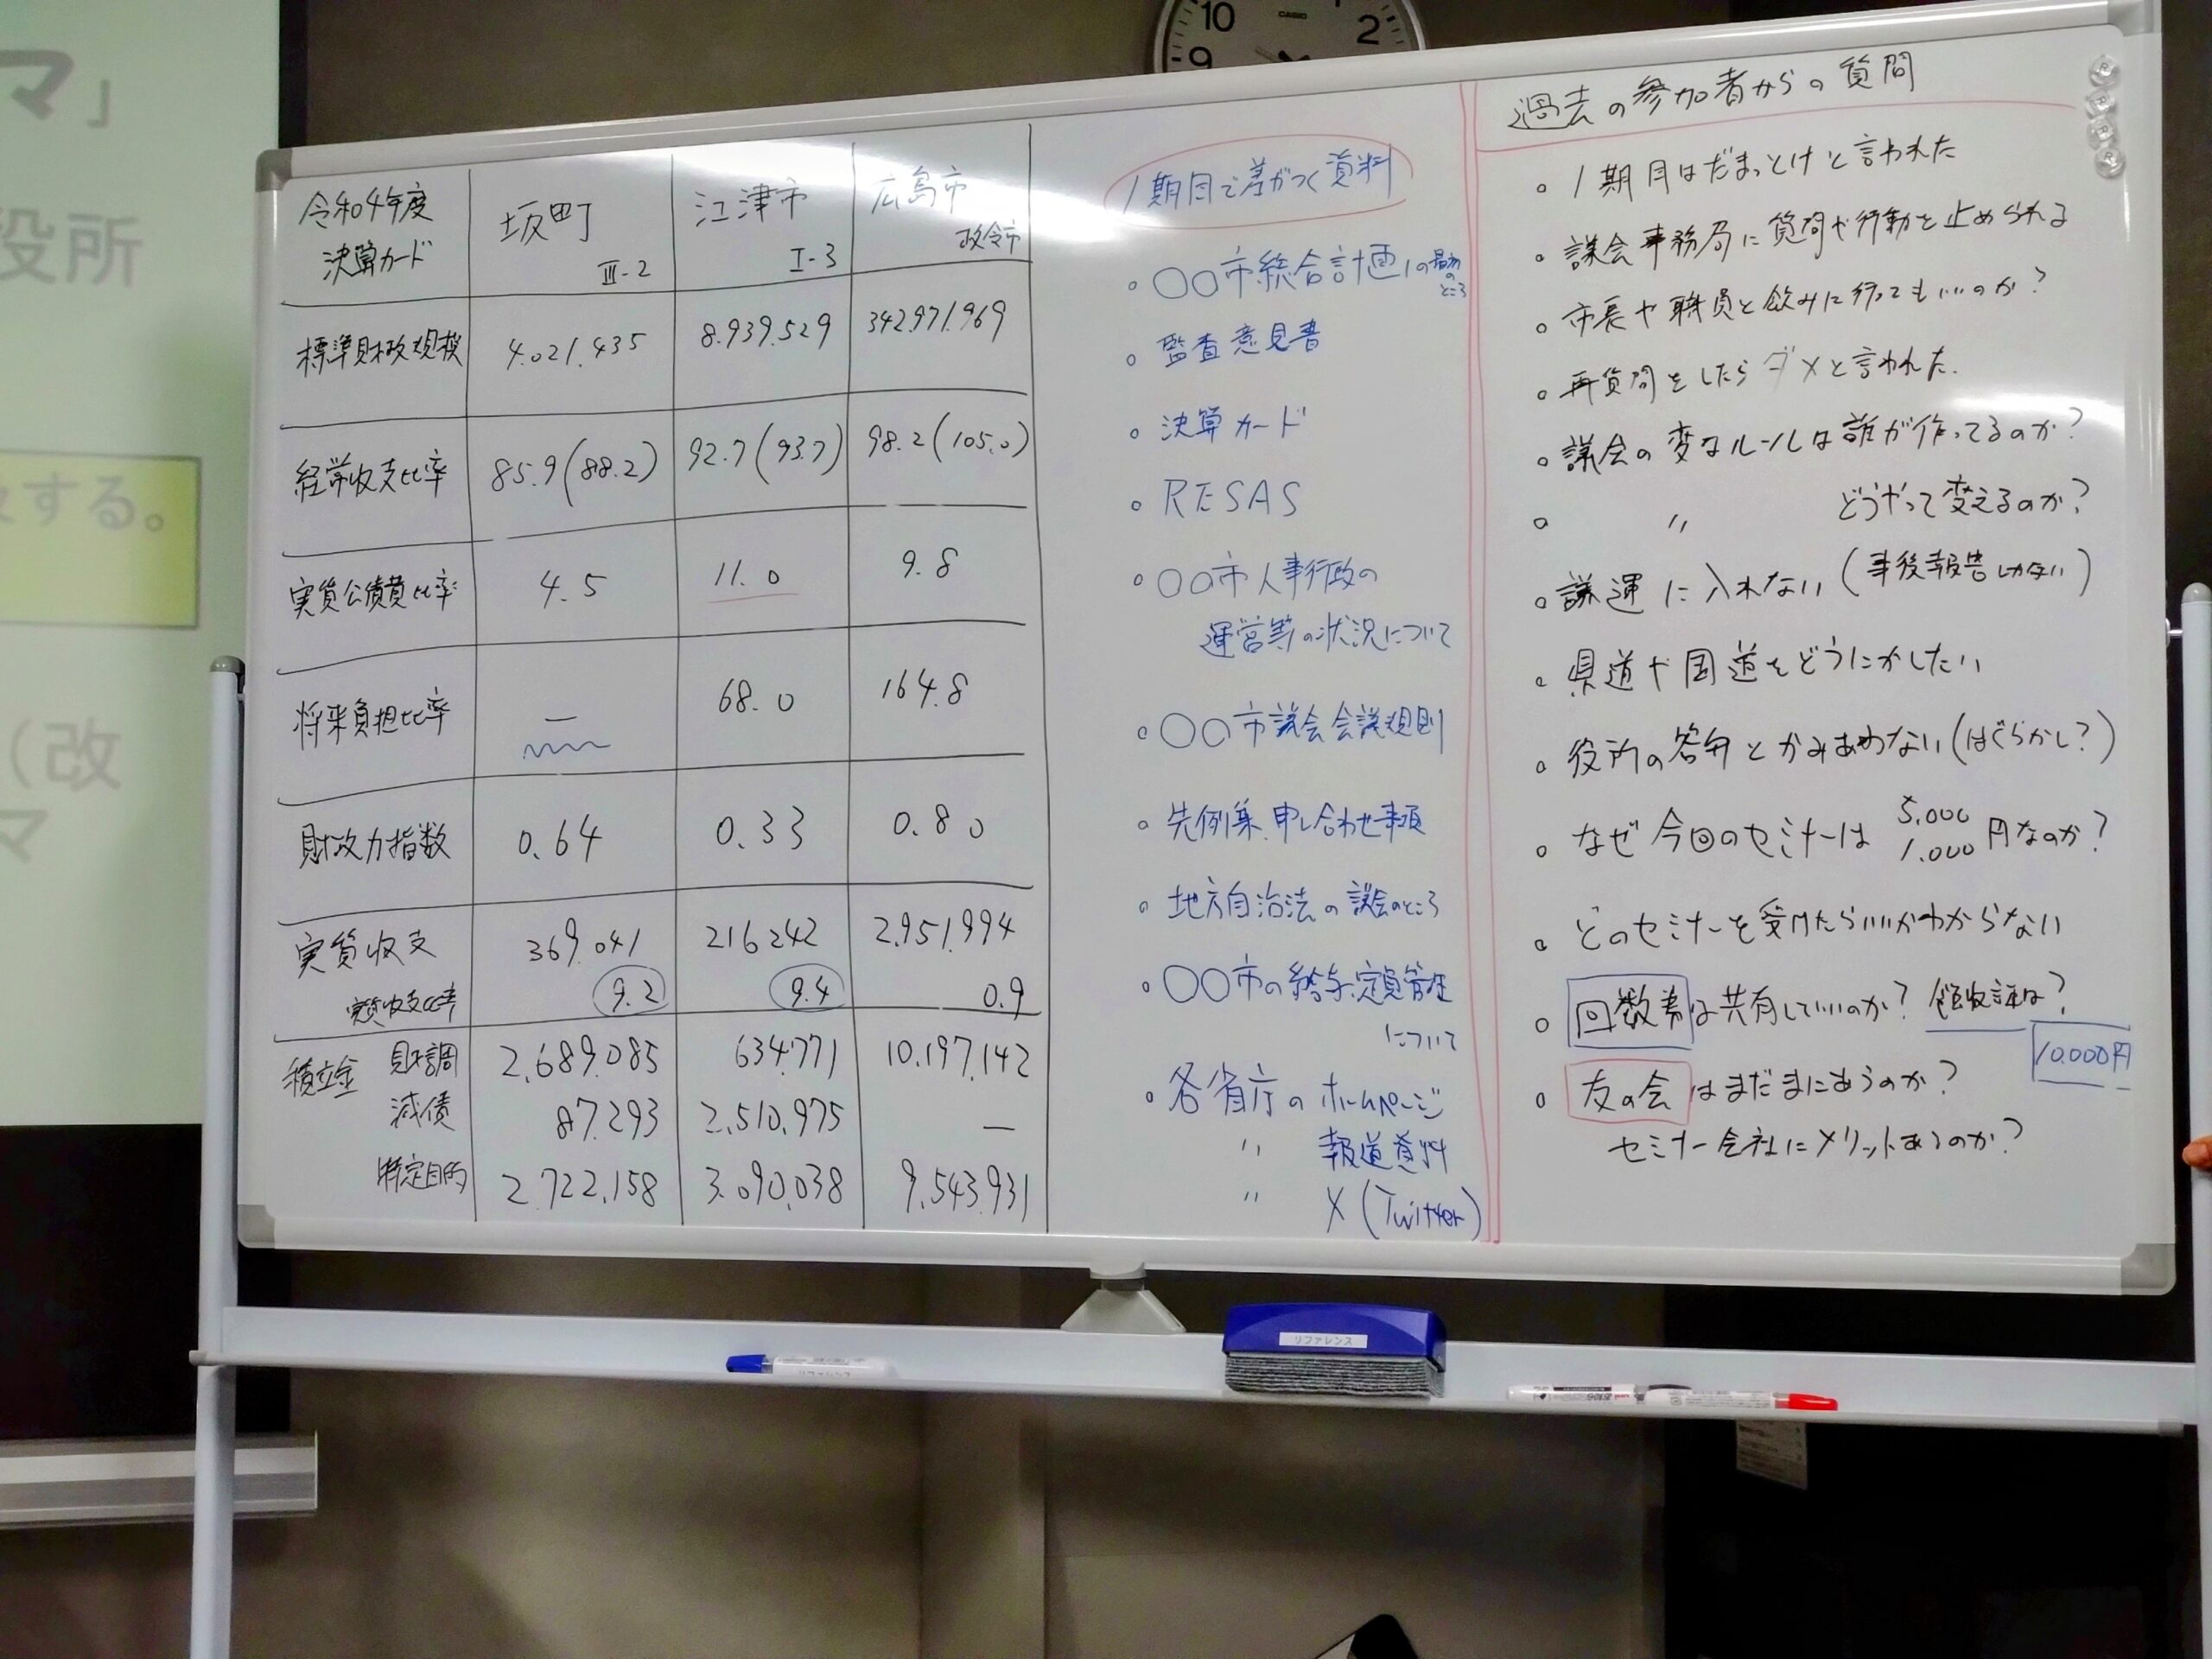 マ」
役所
する。
（改
マ
10
2
9
CASIO
令和4年度
決算カード
坂町
Ⅲ-2
江津市
Ⅰ-3
広島市
政令市
標準財政規模 4.021.435 8.939.529 342.971.969
経常収支比率 85.9(88.2) 92.7(93.7) 98.2(105.0)
実質公債費比率 4.5 11.0 9.8
将来負担比率 — 68.0 164.8
財政力指数 0.64 0.33 0.80
実質収支 369.041 216242 2.951.994
実質収支比率 9.2 9.4 0.9
積立金 財調 2.689.085 634.771 10.197.142
減債 87.293 2.510.975 —
特定目的 2.722.158 3.090.038 9.543.931
1期目で差がつく資料
○○市総合計画の最初のところ
監査意見書
決算カード
RESAS
○○市人事行政の
運営等の状況について
○○市議会会議規則
先例集、申し合わせ事項
地方自治法の議会のところ
○○市の給与、定員管理
について
各省庁のホームページ
〃 報道資料
〃 X(Twitter)
過去の参加者からの質問
1期目はだまっとけと言われた
議会事務局に質問や行動を止められる
市長や職員と飲みに行ってもいいのか?
再質問をしたらダメと言われた.
議会の変なルールは誰が作ってるのか?
〃 どうやって変えるのか?
議運に入れない(事後報告しかない)
県道や国道をどうにかしたい
役所の答弁とかみあわない(はぐらかし?)
なぜ今回のセミナーは 5.000 1.000 円なのか?
どのセミナーを受けたらいいかわからない
回数券は共有していいのか? 領収証は?
10.000円
友の会はまだまにあうのか?
セミナー会社にメリットあるのか?
リファレンス
リファレンス